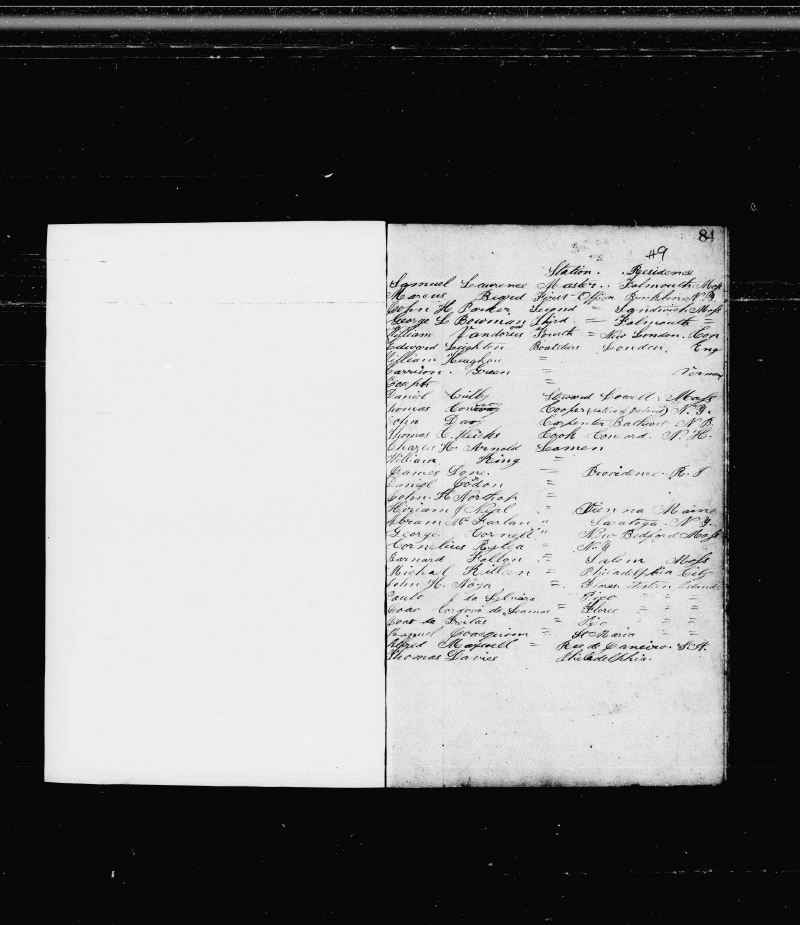 84
#9
Station. Residence
Samuel Lawrence Master. Falmouth Mass
Marcus Beard First Officer Brooklin N.Y.
John H. Parker Second = Sandwich Mass
George L Bowman Third = Falmouth =
William Fourth = New London. Con
Edward Leighton London. Eng
William Heughan =
Garrison. Green = Vermon
Joseph =
Daniel Steward Lowell. Mass
Thomas Cooper (native of Ireland) N.Y.
John Day Carpenter Bathurst N.B.
Thomas C. Hicks Cook Concord. N.H.
Charles H. Arnold Seamen
William King =
James Lone. = Providence. R.I
Daniel Codon =
John. H Northop =
Hiriam J = Vienna Maine
Abram McFarlan " Saratoga. N.Y.
George Cornell " New Bedford Mass
Cornelius = N.Y
Barnard Fallon = Salem Mass
Michael Killien = Philadelphia City
John H. Noya = Western Islands
Paulo J da Sylveira Pico = = =
Joao de = Flores = =
Joao de Freitas = Pico = = =
Manuel Joaquim = St Maria = =
Alfred Maxwell = Rio de Janeiro. S.A.
Thomas Davies Philadelphia.